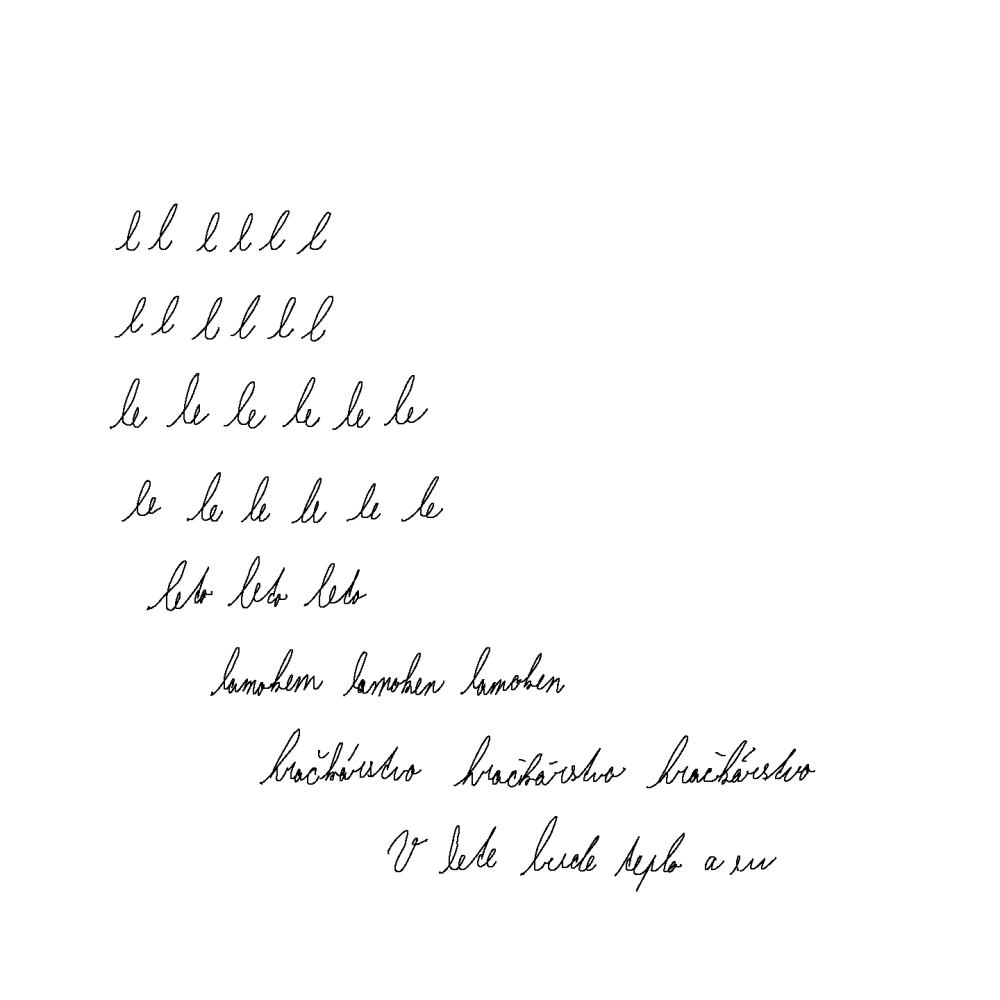 l l l l l l
l l l l l l
le le le le le le
le le le le le le
leto leto leto
lamohem lamohen lamohen
hračkárstvo hračkárstvo hračkárstvo
V lete bude teplo a su